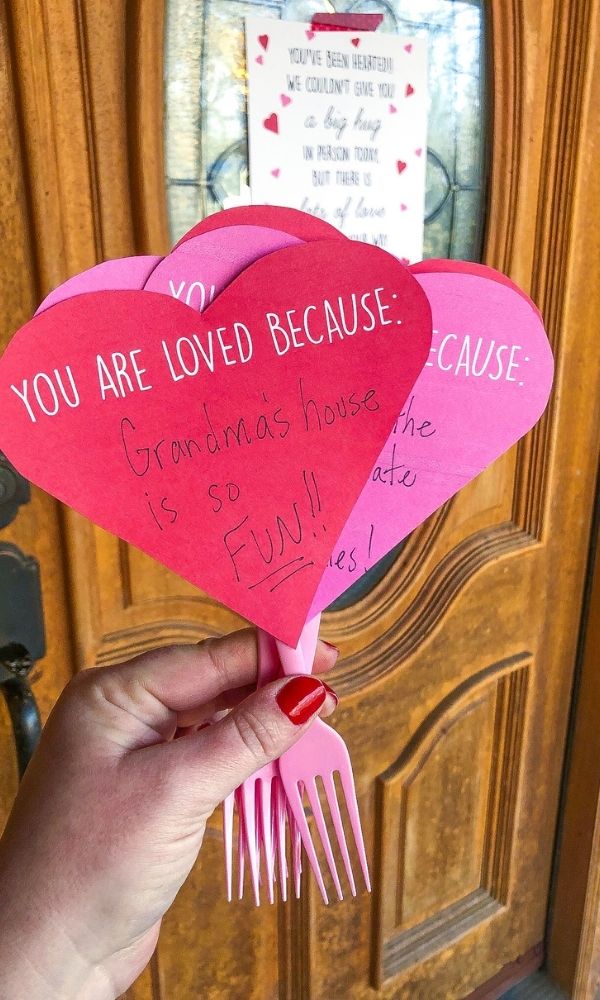 YOU'VE BEEN HEARTED!!
WE COULDN'T GIVE YOU
a big hug
IN PERSON TODAY,
BUT THERE IS
lots of love
YOUR WAY
YO
YOU ARE LOVED BECAUSE:
Grandma's house
is so
FUN!!
ECAUSE:
the
ate
ies!